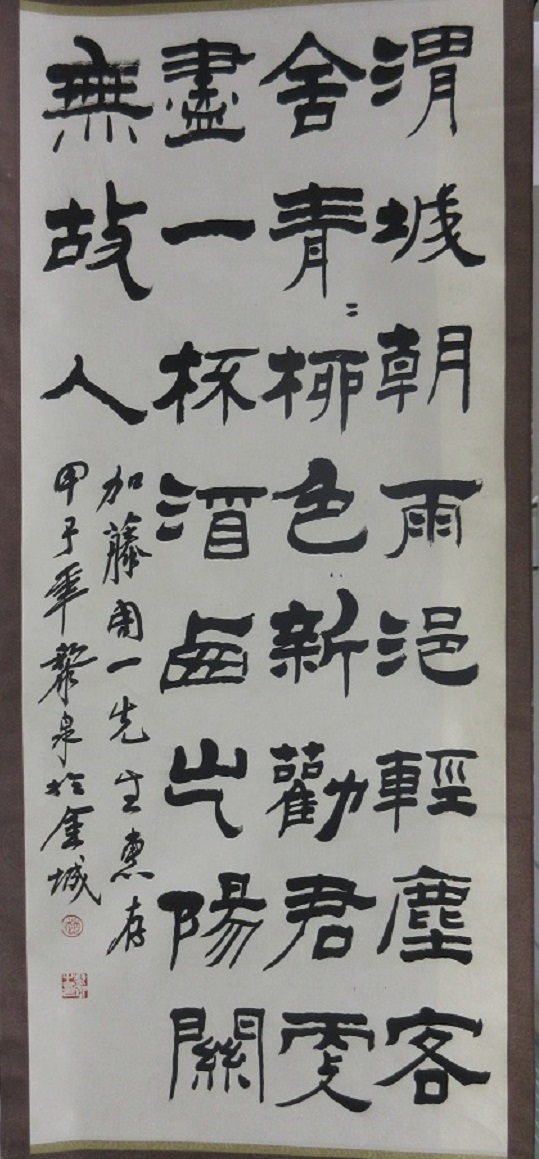 渭城朝雨浥輕塵客
舍青〻柳色新勸君更
盡一杯酒西出陽關
無故人
加藤周一先生惠存
甲子年黎泉於金城